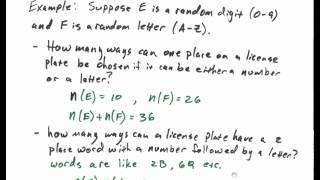 Example: Suppose E is a random digit (0-9)
and F is a random letter (A-Z).
- How many ways can one place on a license
plate be chosen if it can be either a number
or a letter?
n(E) = 10 , n(F) = 26
n(E) + n(F) = 36
- how many ways can a license plate have a 2
place word with a number followed by a letter?
words are like 2B, 6Q, etc.